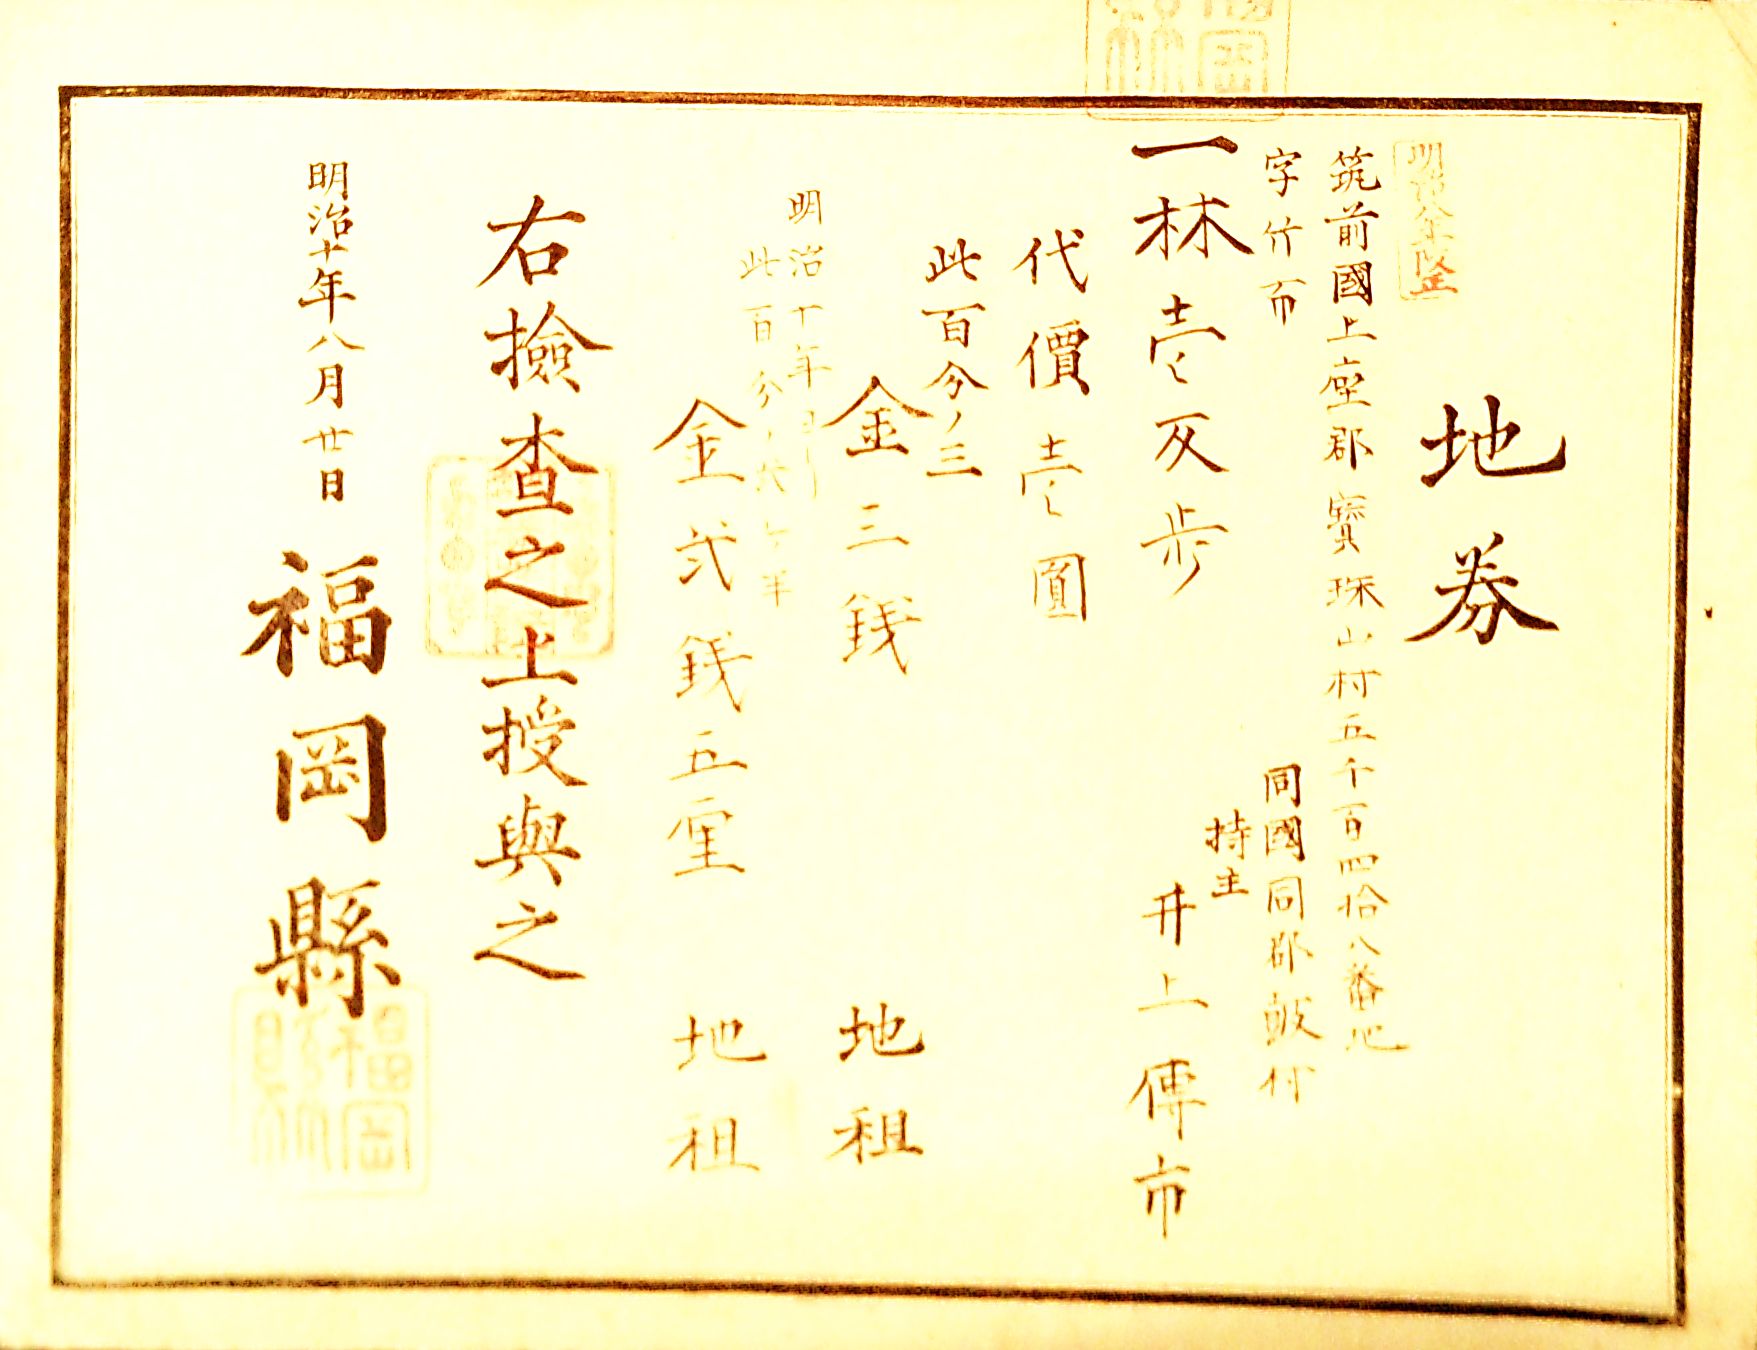 地券
筑前國上座郡寳珠山村五千百四拾八番地
字竹
同國同郡 村
持主
井上傳市
一林壹反歩
代價壹圓
此百分ノ三
金三錢 地租
明治十年ヨリ
此百分ノ二ケ半
金弐錢五厘 地租
右撿查之上授與之
明治十年八月廿日
福岡縣